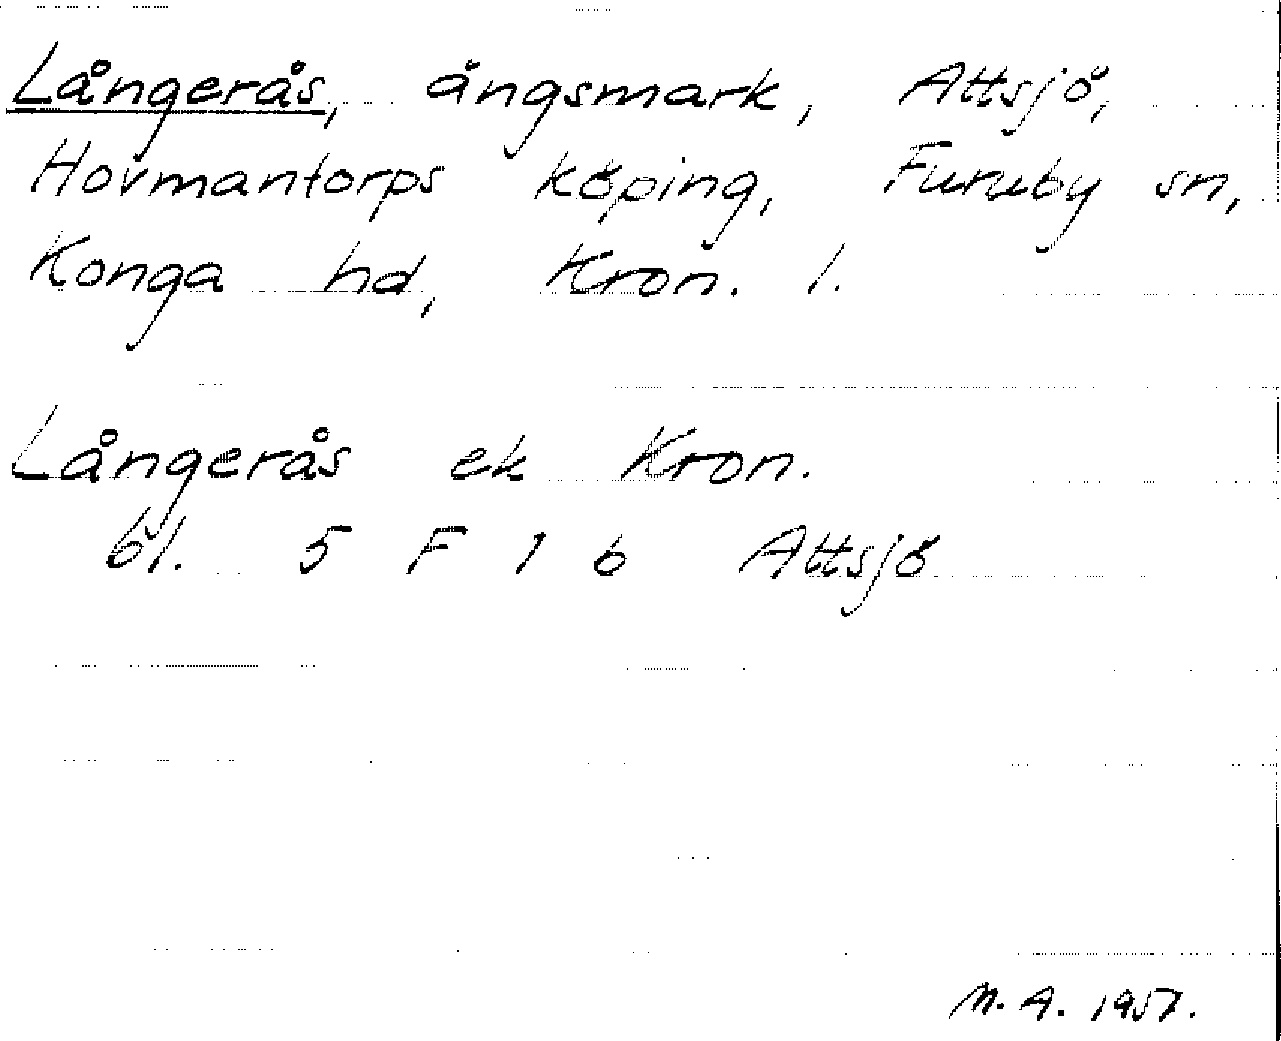 Långerås, ängsmark, Attsjö,
Hovmantorps köping, Furuby sn,
Konga hd, Kron. l.
Långerås ek Kron.
bl. 5 F 1 b Attsjö
M. A. 1957.